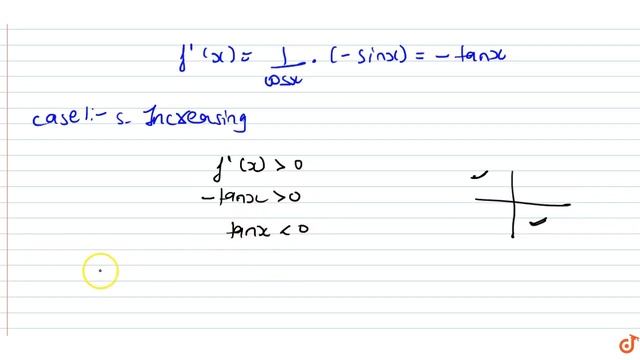 f'(x) = 1/cosx . (-sinx) = -tanx
case1:- s. Increasing
f'(x) > 0
-tanx > 0
tanx < 0